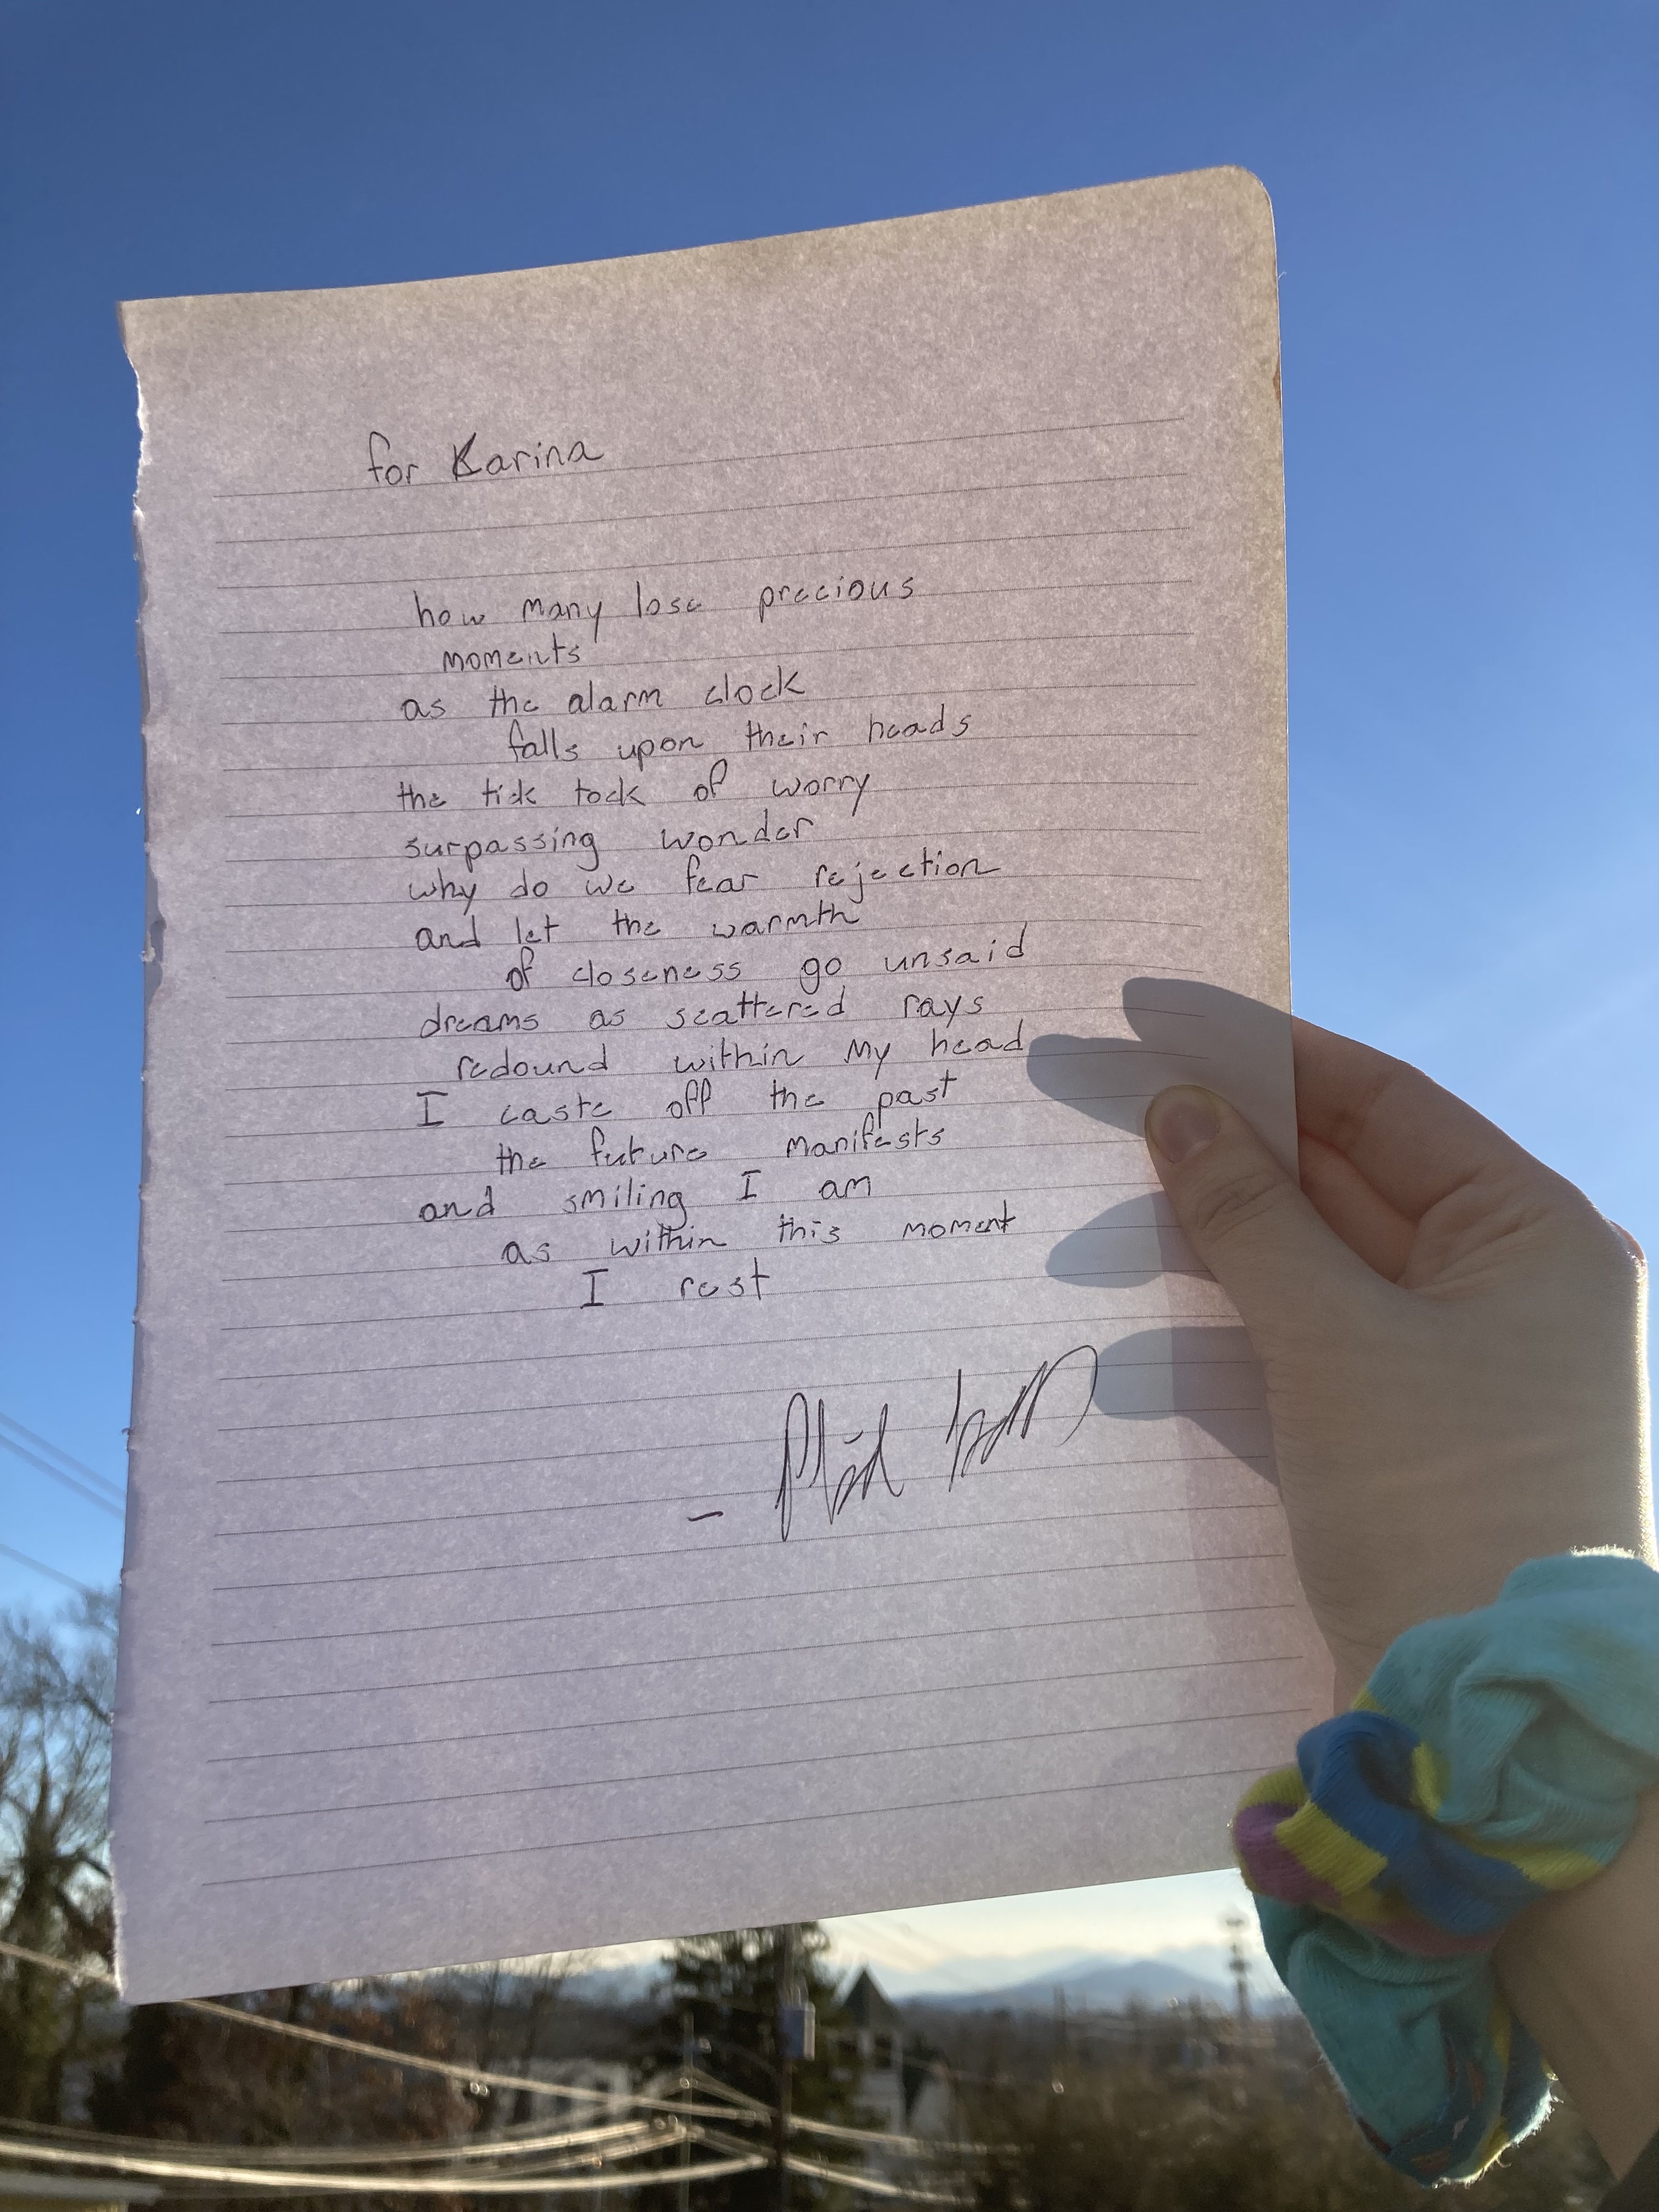 for Karina
how many lose precious
moments
as the alarm clock
falls upon their heads
the tick tock of worry
surpassing wonder
why do we fear rejection
and let the warmth
of closeness go unsaid
dreams as scattered rays
redound within my head
I caste off the past
the future manifests
and smiling I am
as within this moment
I rest